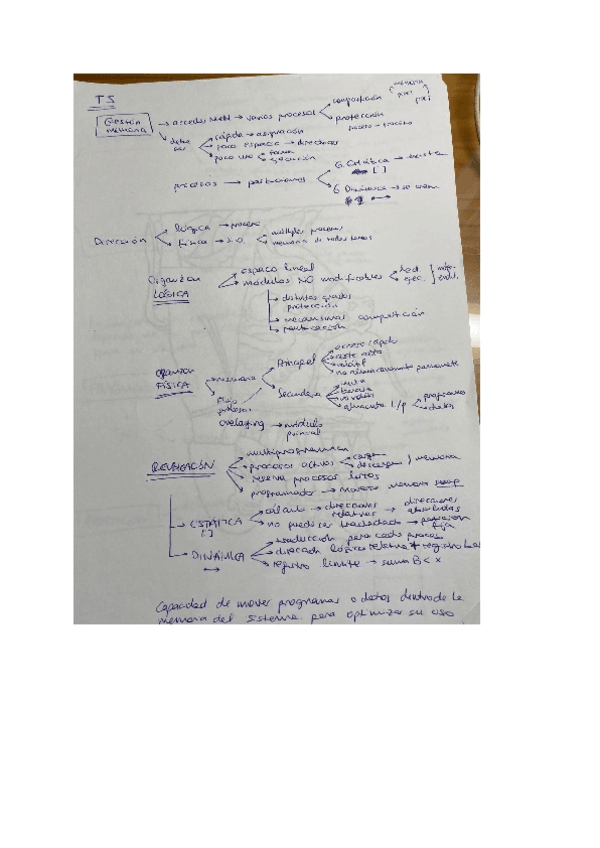 T5
Gestión memoria → acceder MEM → varios procesos → compartición
protección
proceso → proceso
debe ser → rápida → asignación
poco espacio → directorios
poco uso
ejecución
procesos → particiones → G. Estática → [ ]
G. Dinámica → se crean
Dirección → lógica → proceso
física → S.O. → múltiples procesos
memoria de
Organizan LÓGICA → espacio lineal
módulos NO modificables → lect. ejec.
distintos grados protección
mecanismos compartición
FÍSICA → memoria → Principal → acceso rápido
coste alto
volátil
no almacenamiento permanente
Flujo → Secundaria → lenta
barata
no volátil
almacenamto l/p → programas
datos
overlaying → módulo principal
REUBICACIÓN → multiprogramación
procesos activos → carga descarga } memoria
reserva procesos listos
programador → memoria swap
ESTÁTICA [ ] → cálculo → direcciones relativas → direcciones absolutas
no puede ser trasladado → posición fija
DINÁMICA → traducción para cada proceso
dirección lógica relativa + registro
registro límite → suma B < x
Capacidad de mover programas o datos dentro de la
memoria del sistema para optimizar su uso